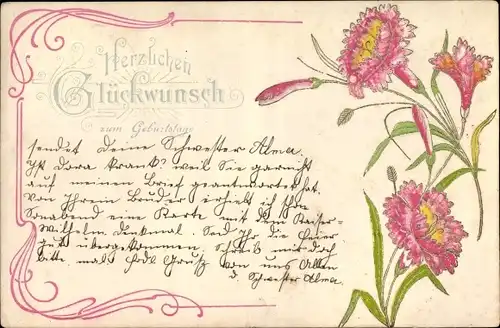 Herzlichen
Glückwunsch
zum Geburtstage
sendet Deine Schwester Alma.
Ist Dora krank? weil Sie garnicht
auf meinen Brief geantwortet hat.
von Ihrem Bruder erhielt ich schon
Sonabend eine Karte mit dem Kaiser-
Wilhelm denkmal. Seid Ihr die Feier
gut übergekommen. Schreib mir doch
bitte mal. Grusz von uns Allen
d. Schwester Alma.